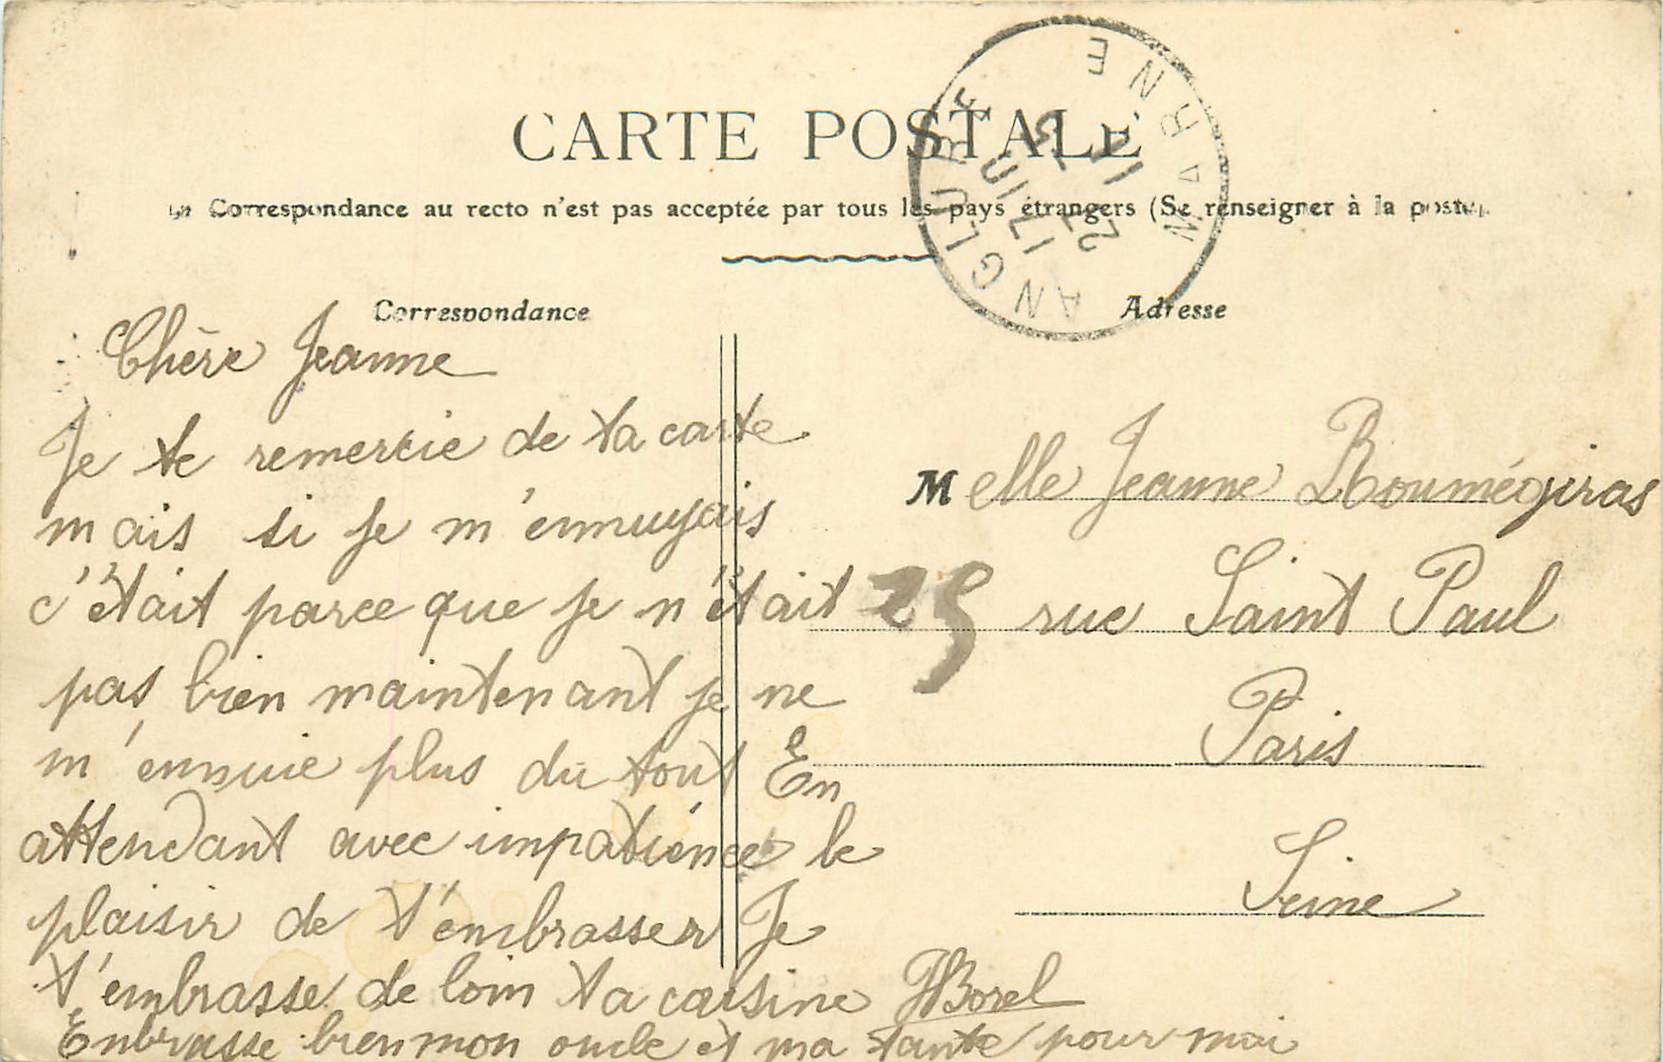 CARTE POSTALE
La Correspondance au recto n'est pas acceptée par tous les pays étrangers (Se renseigner à la poste).
ANGLURE MARNE
17
22
Correspondance
Adresse
Chère Jeanne
Je te remercie de ta carte
mais si je m'ennuyais
c'était parce que je n'était
pas bien maintenant je ne
m'ennuie plus du tout En
attendant avec impatience le
plaisir de t'embrasser Je
t'embrasse de loin ta cousine Borel
Enbrasse bien mon oncle et ma tante pour moi
Melle Jeanne Roumégiras
25 rue Saint Paul
Paris
Seine